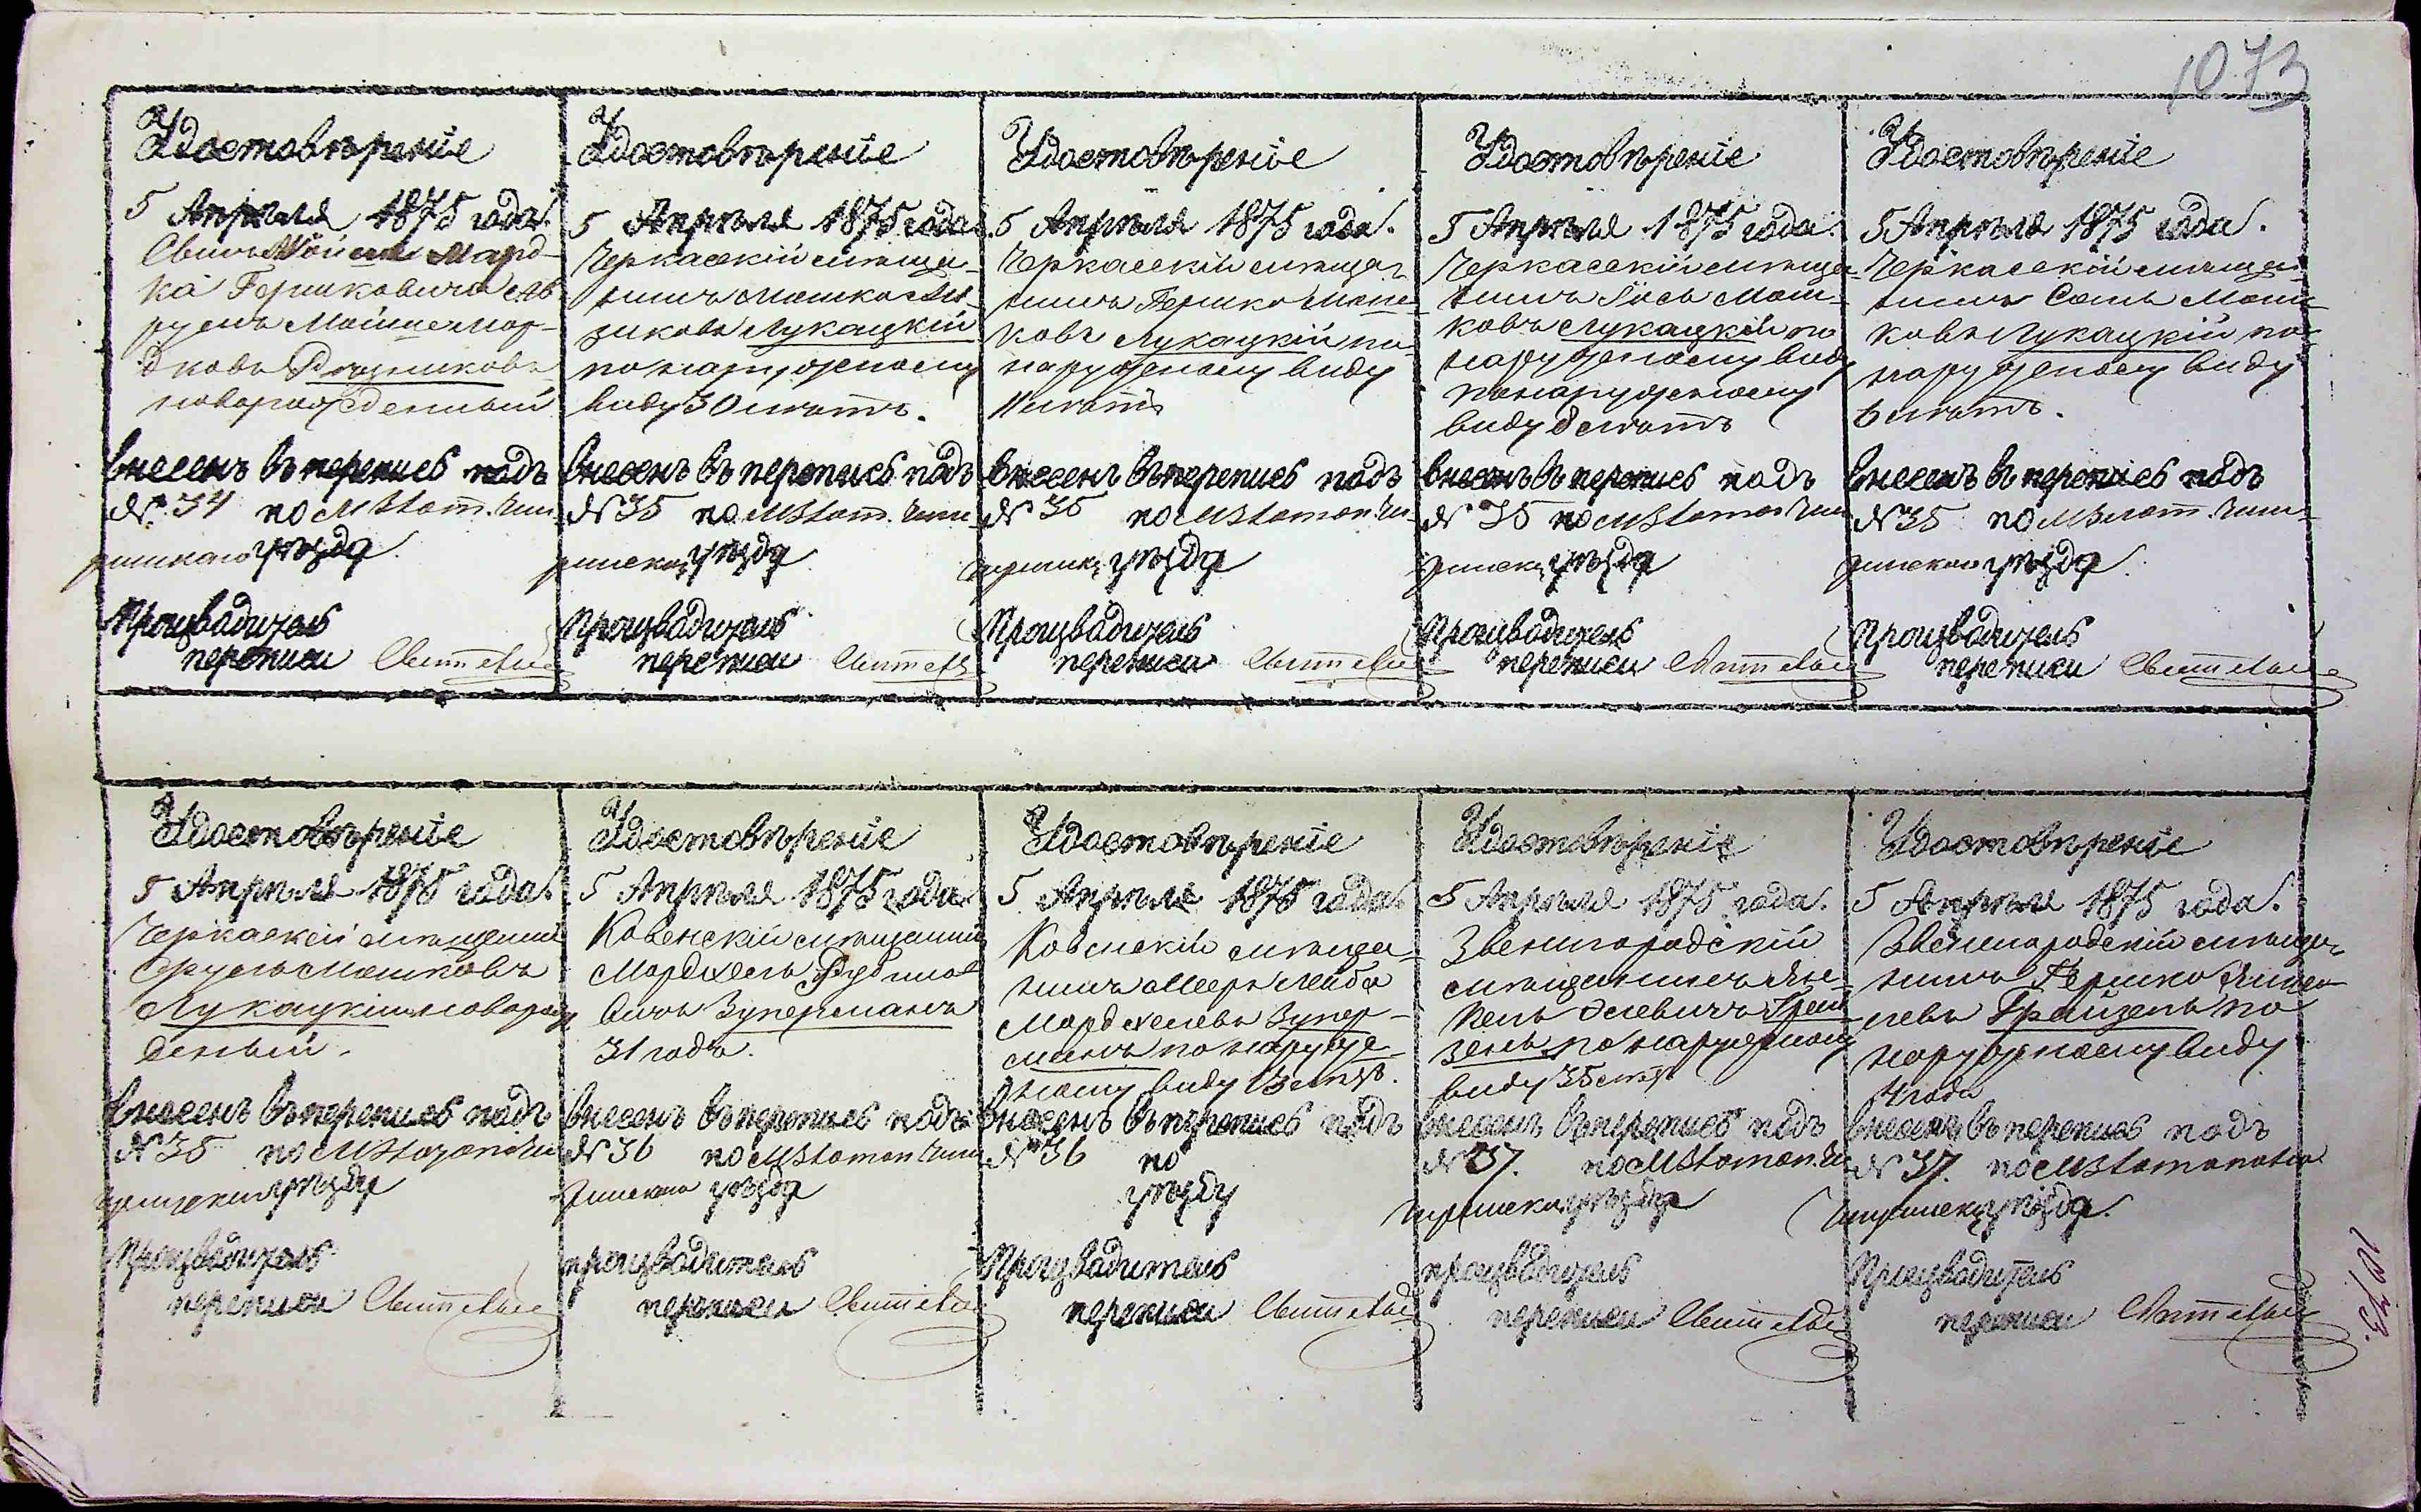 1073
Удостовѣреніе
5 Апрѣля 1875 года.
Сынъ Мойсея Морд-
ка Гершковича
Мойше Мор-
дковъ
новорожденный
внесенъ въ перепись подъ
№ 34 по М Златоп. Чиги-
ринскаго уѣзда.
Производитель
переписи
Удостовѣреніе
5 Апрѣля 1875 года.
Черкасскій мѣща-
нинъ Мошко
Лукацкій
по наружному
виду 30 лѣтъ.
внесенъ въ перепись подъ
№ 35 по М Златоп. Чиги-
ринска уѣзда
Производитель
переписи
Удостовѣреніе
5 Апрѣля 1875 года.
Черкасскій мѣща-
нинъ Гершко Мош-
ковъ Лукацкій по
наружному виду
11 лѣтъ
внесенъ въ перепись подъ
№ 35 по М Златопол. Чи-
гиринск уѣзда
Производитель
переписи
Удостовѣреніе
5 Апрѣля 1875 года.
Черкасскій мѣща-
нинъ Іось Мош-
ковъ Лукацкій по
наружному виду
по наружному
виду 8 лѣтъ
внесенъ въ перепись подъ
№ 35 по М Златопол Чиги-
ринск уѣзда
Производитель
переписи
Удостовѣреніе
5 Апрѣля 1875 года.
Черкасскій мѣща-
нинъ Мош-
ковъ Лукацкій по
наружному виду
6 лѣтъ.
внесенъ въ перепись подъ
№ 35 по М Златоп. Чиги-
ринскаго уѣзда.
Производитель
переписи
Удостовѣреніе
5 Апрѣля 1875 года.
Черкасскій мѣщанинъ
Сруль Мошковъ
Лукацкій новорож
денный.
внесенъ въ перепись подъ
№ 35 по М Златопол Чи
гиринска уѣзду
Производитель
переписи
Удостовѣреніе
5 Апрѣля 1875 года
Ковенскій мѣщанинъ
Мордхель Рубино
вичъ Зуперманъ
31 годъ.
внесенъ въ перепись подъ
№ 36 по М Златопол Чиги
ринскаго уѣзда
производитель
переписи
Удостовѣреніе
5 Апрѣля 1875 года.
Ковенскій мѣща-
нинъ Мееръ Лейба
Мордхелевъ Зупер-
манъ по наруж-
ному виду
внесенъ въ перепись подъ
№ 36 по
уѣзду
Производитель
переписи
Удостовѣреніе
5 Апрѣля 1875 года.
Звенигородскій
мѣщанинъ Ян-
кель Грай
зель по наружному
виду 35 лѣтъ
внесенъ въ перепись подъ
№ 37. по М Златопол. Чи
гиринска уѣзда
производитель
переписи
Удостовѣреніе
5 Апрѣля 1875 года.
Звенигородскій мѣща-
нинъ Гершко Янке-
левъ Грайзель по
наружному виду
4 года
внесенъ въ перепись подъ
№ 37. по М Златополю
Чигиринск уѣзда.
Производитель
переписи
1073.